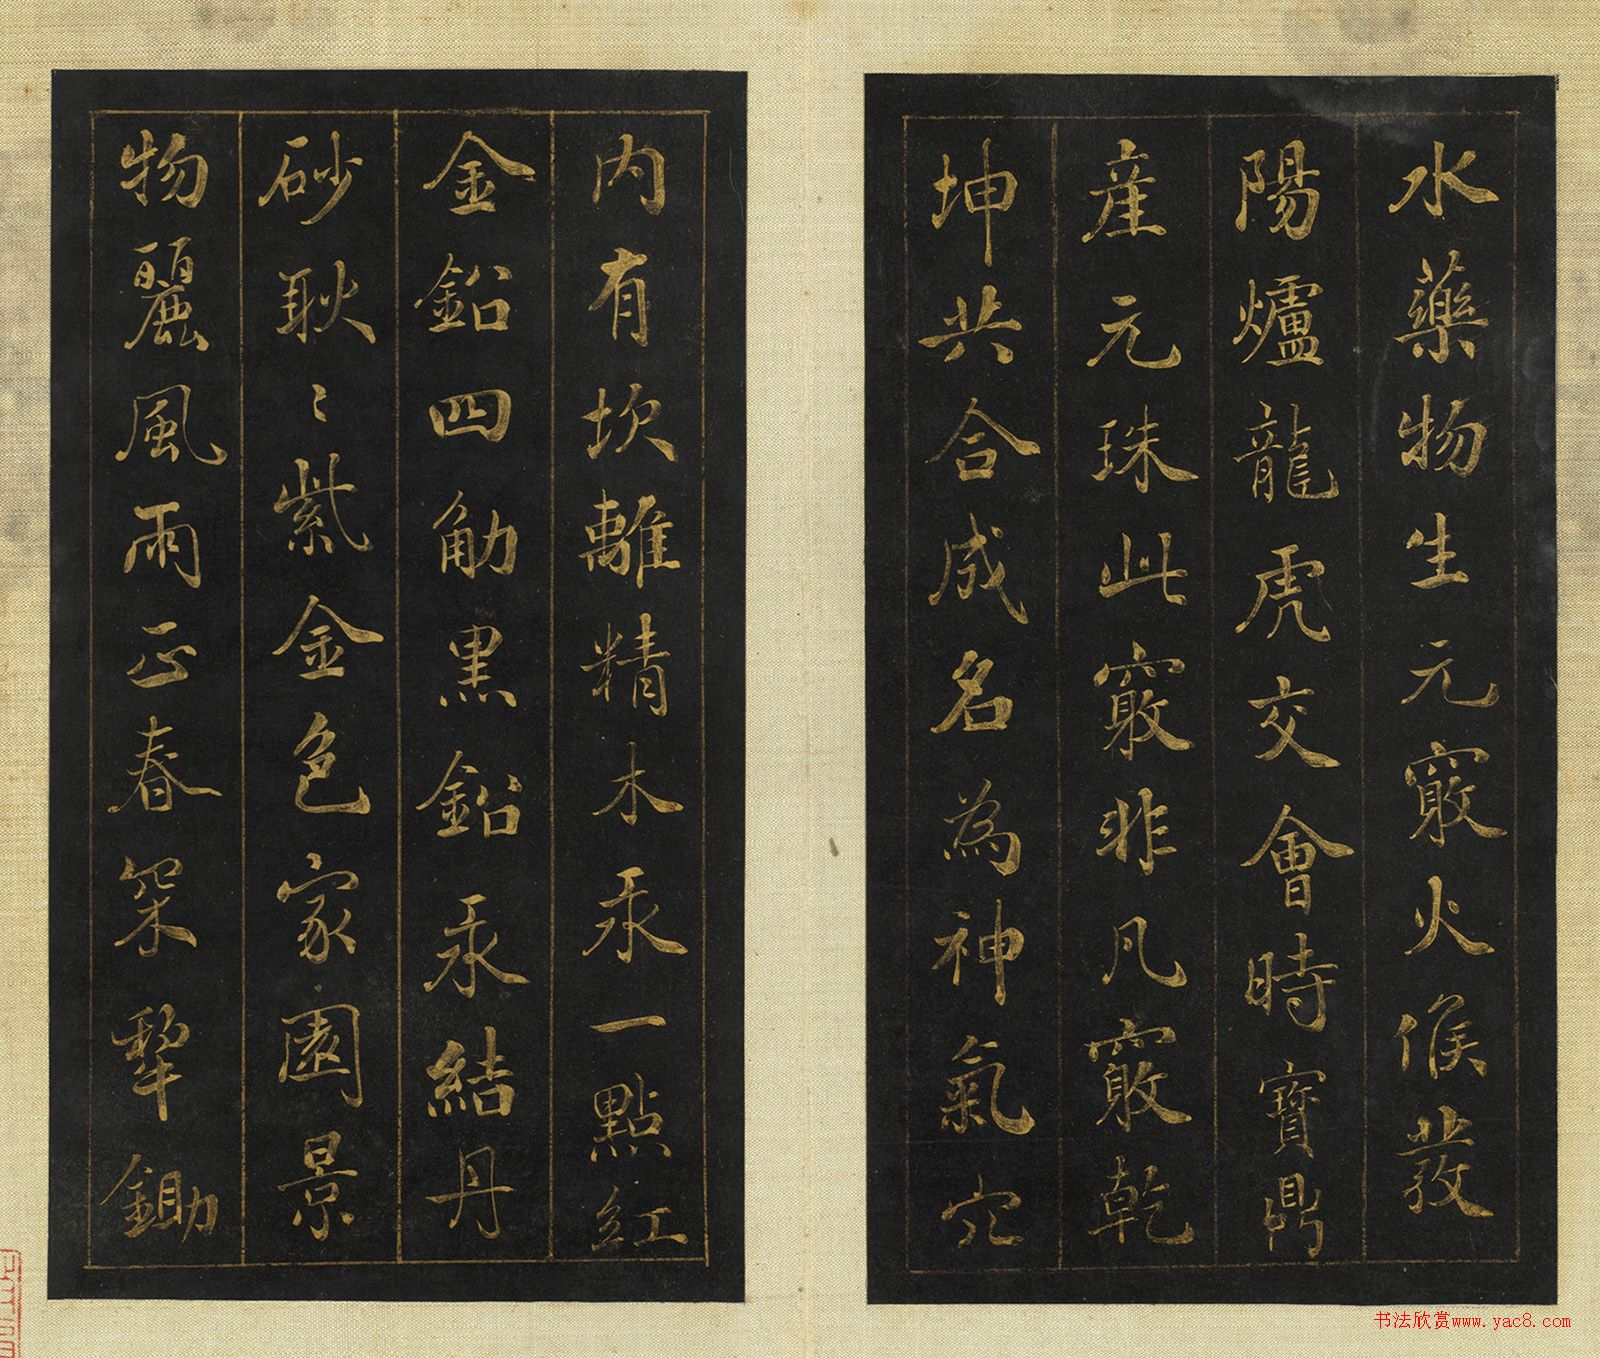 水藥物生元竅火候發
陽爐龍虎交會時寶鼎
産元珠此竅非凡竅乾
坤共合成名為神氣穴
内有坎離精木汞一點紅
金鉛四觔黑鉛汞結丹
砂耿〻紫金色家園景
物麗風雨正春深犂鋤
书法欣赏www.yac8.com